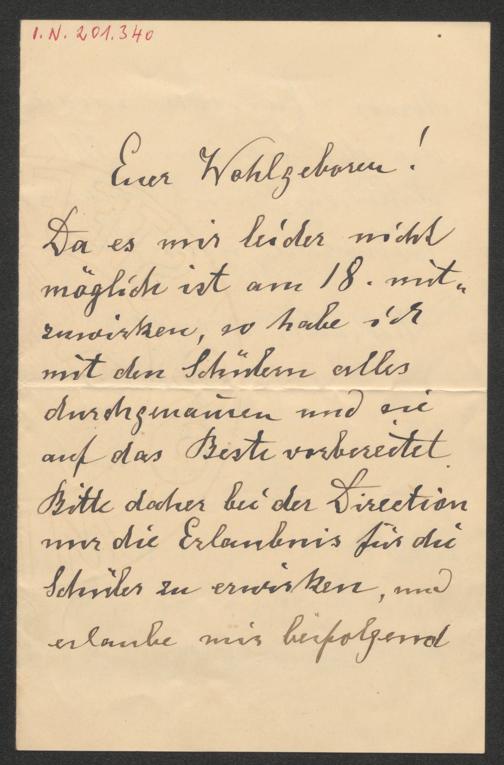 I.N. 201.340
Euer Wohlgeboren!
Da es mir leider nicht
möglich ist am 18. mit-
zuwirken, so habe ich
mit den Schülern alles
durchgenommen und sie
auf das Beste vorbereitet.
Bitte daher bei der Direction
nur die Erlaubnis für die
Schüler zu erwirken, und
erlaube mir beifolgend